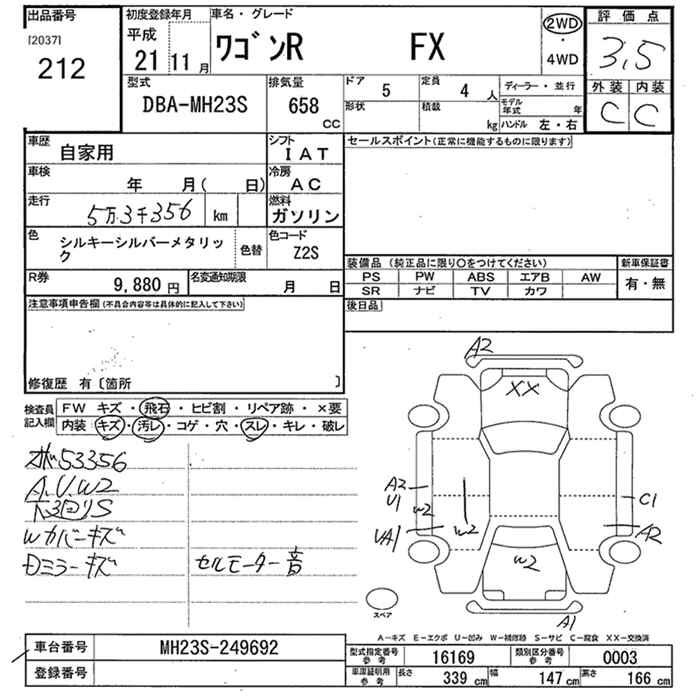 出品番号
[2037]
212
初度登録年月
平成
21 11月
車名・グレード
ワゴンR FX
2WD
・
4WD
評価点
3.5
外装 内装
C C
型式
DBA-MH23S
排気量
658
CC
ドア 5
定員 4 人
形状
積載 kg
ディーラー・並行
モデル年式 年
ハンドル 左・右
車歴
自家用
シフト
IAT
車検
年 月( 日)
冷房
AC
走行
5万3千356 km
燃料
ガソリン
色
シルキーシルバーメタリック
色替
色コード
Z2S
R券
9,880円
名変通知期限
月 日
セールスポイント(正常に機能するものに限ります)
装備品(純正品に限り〇をつけてください)
新車保証書
PS PW ABS エアB AW
SR ナビ TV カワ
有・無
後日品
注意事項申告欄(不具合内容等は具体的に記入して下さい)
修復歴 有〔箇所 〕
検査員記入欄
FW キズ・飛石・ヒビ割・リペア跡・×要
内装・キズ・汚レ・コゲ・穴・スレ・キレ・破レ
メボ53356
A.U.W2
下回りS
Wカバーキズ
Dミラーキズ
セルモーター音
A2
XX
A2
U1
W2
W2
UA1
C1
A2
W2
A1
スペア
A-キズ E-エクボ U-凹み W-補修跡 S-サビ C-腐食 XX-交換済
車台番号
MH23S-249692
登録番号
型式指定番号
参考
16169
類別区分番号
参考
0003
車庫証明用
参考
長さ 339cm
幅 147cm
高さ 166cm